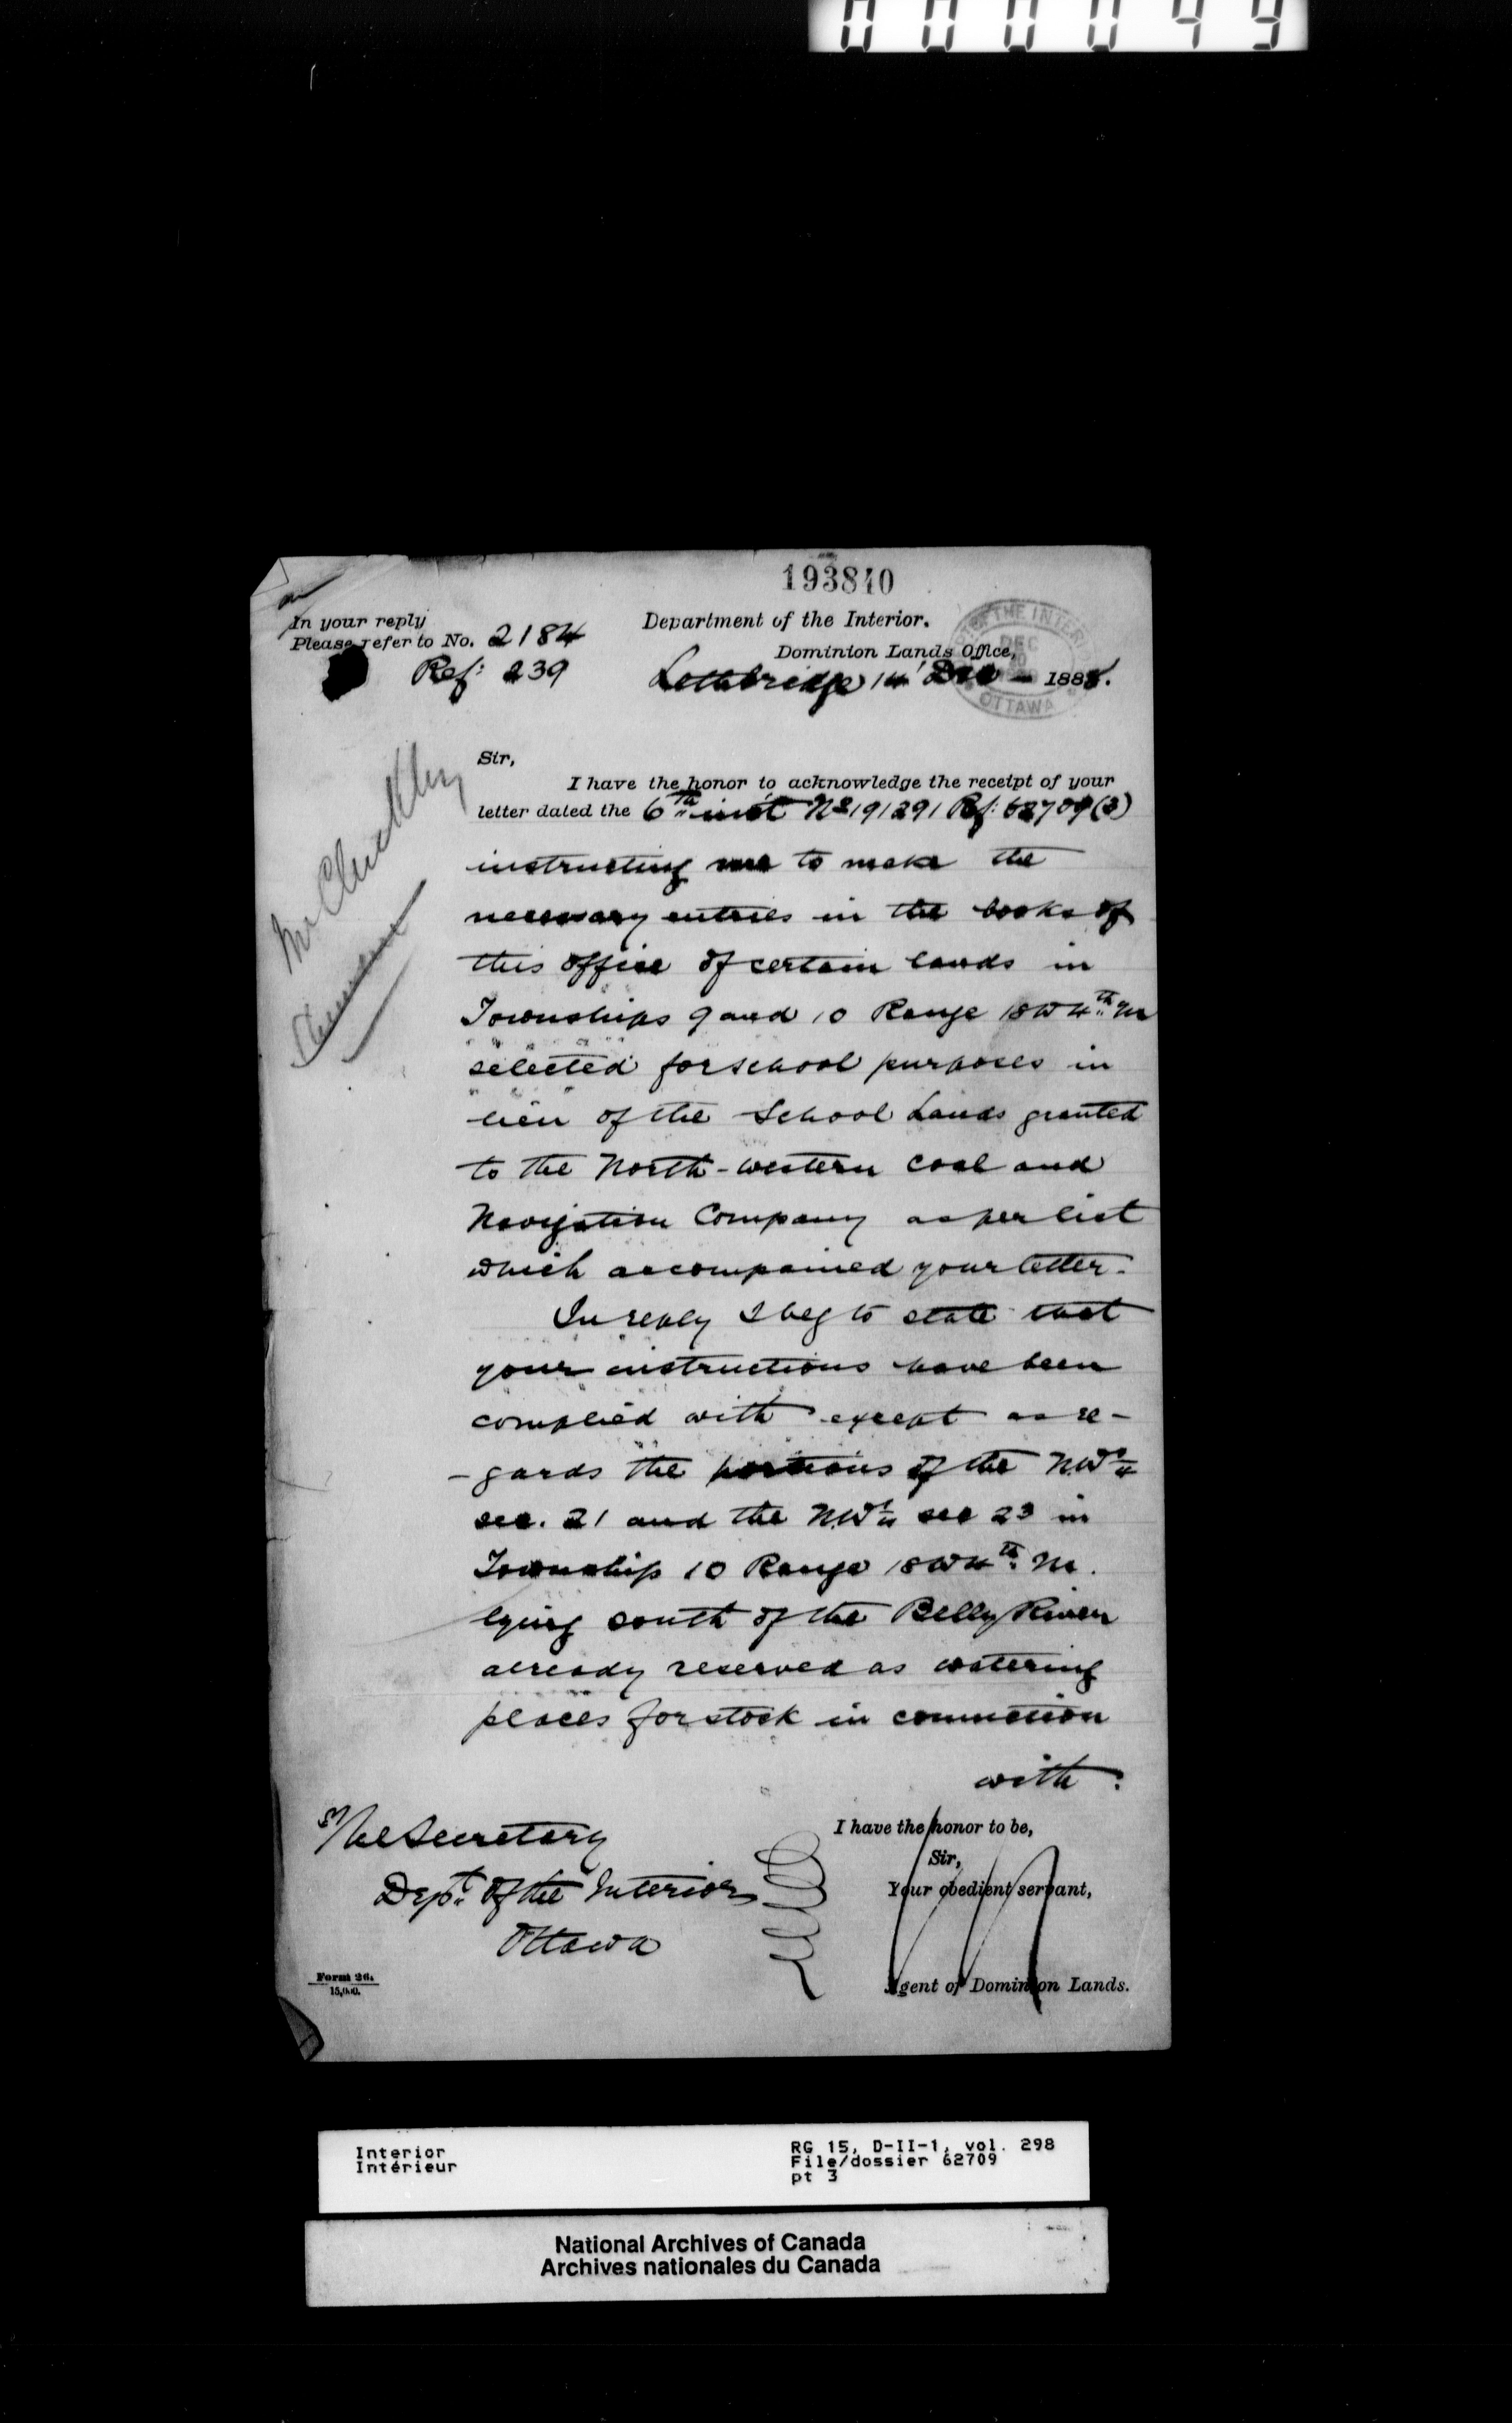 000049
193840
In your reply
Please refer to No. 2184
Ref: 239
Department of the Interior.
Dominion Lands Office,
Lethbridge 14 Dec 1888.
THE INTERI
DEC
OTTAWA
Sir,
I have the honor to acknowledge the receipt of your
letter dated the 6th inst No 191291 Ref: 62709 (3)
instructing me to make the
necessary entries in the books of
this office of certain lands in
Townships 9 and 10 Range 18 W 4th M
selected for school purposes in
lieu of the School Lands granted
to the North-western Coal and
Navigation Company as per list
which accompanied your letter.
In reply I beg to state that
your instructions have been
complied with except as re-
-gards the portions of the N.W 1/4
sec. 21 and the N.W 1/4 sec 23 in
Township 10 Range 18 W 4th M.
lying south of the Belly River
already reserved as watering
places for stock in connection
with.
The Secretary
Dept. of the Interior
Ottawa
I have the honor to be,
Sir,
Your obedient servant,
Agent of Dominion Lands.
Form 26.
15,000.
Interior
Intérieur
RG 15, D-II-1, vol. 298
File/dossier 62709
pt 3
National Archives of Canada
Archives nationales du Canada